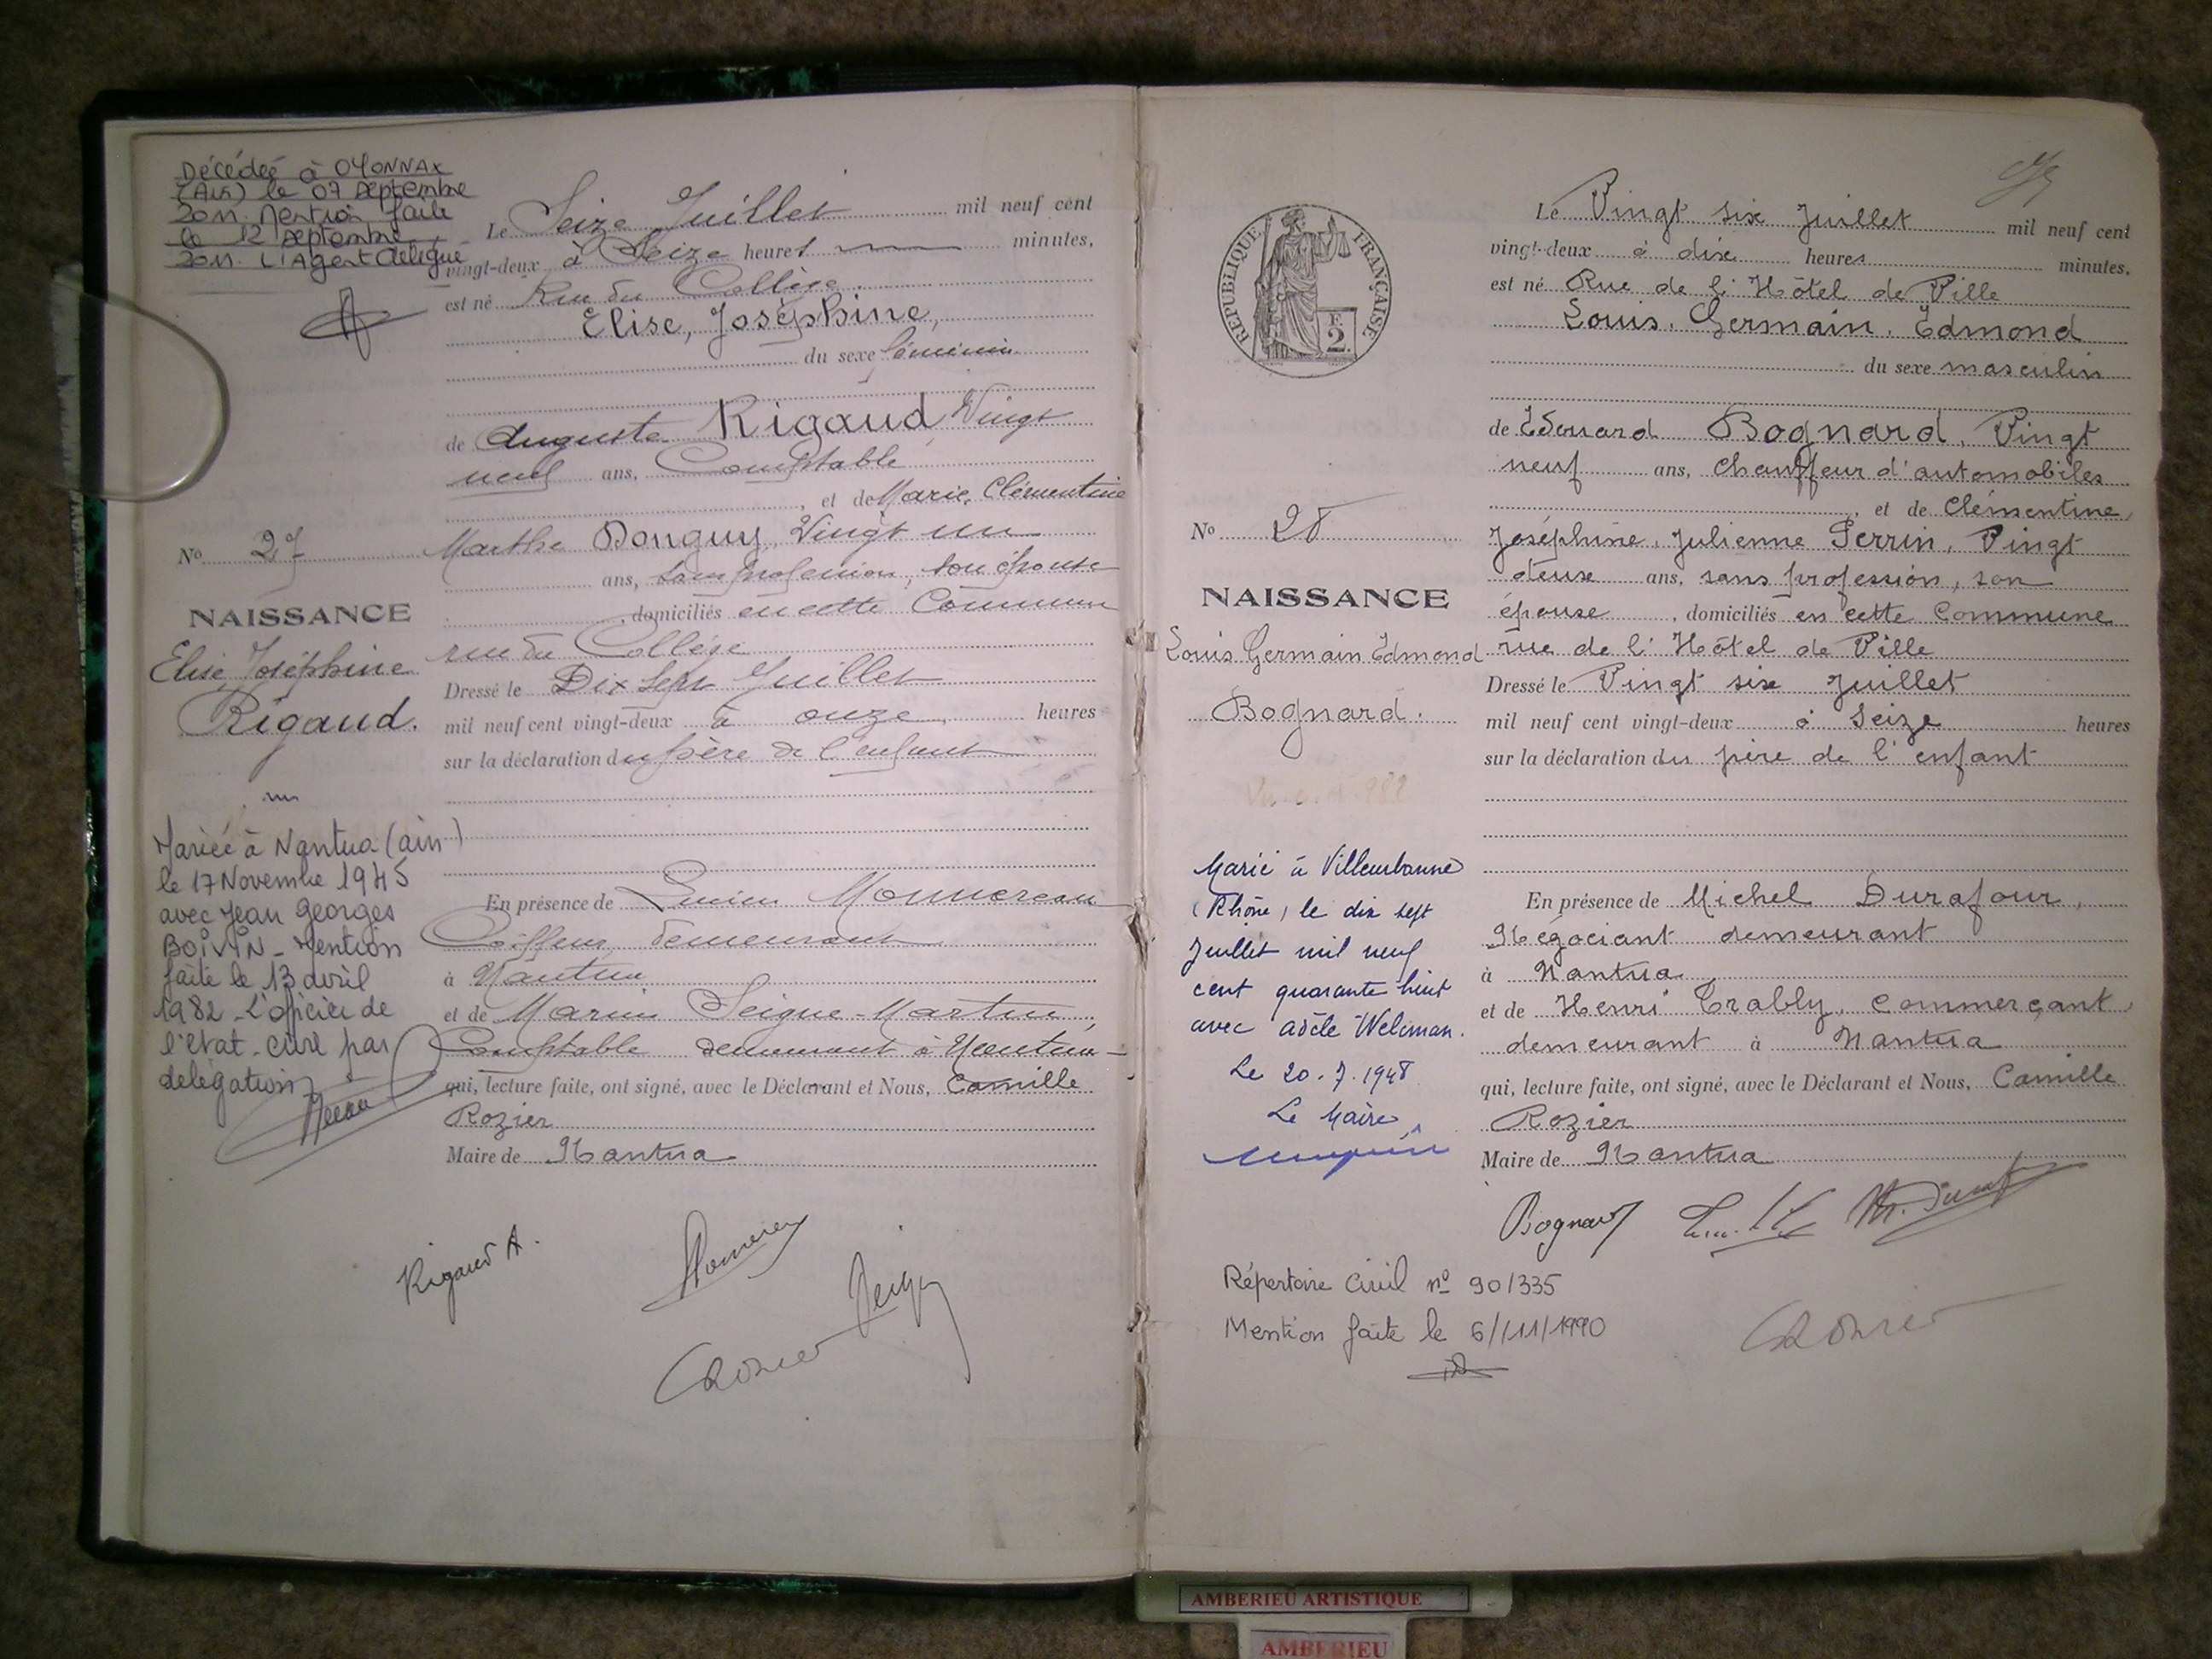 Décédée à OYONNAX
(Ain) le 07 septembre
2011. Mention faite
le 12 septembre
2011. L'Agent délégué
Le Seize Juillet mil neuf cent
vingt-deux à Seize heures minutes,
est né Rue du Collège
Elise, Joséphine,
du sexe féminin
de Auguste Rigaud Vingt
neuf ans, Comptable
, et de Marie, Clémentine
Marthe Donguy, Vingt un
ans, sans profession, son épouse
, domiciliés en cette Commune
rue du Collège
Dressé le Dix sept Juillet
mil neuf cent vingt-deux à onze heures
sur la déclaration du père de l'enfant
En présence de Lucien Monnereau
Coiffeur demeurant
à Nantua
et de Marius Seigne-Martin,
Comptable demeurant à Nantua
qui, lecture faite, ont signé, avec le Déclarant et Nous, Camille
Rozier
Maire de Nantua
No 27
NAISSANCE
Elise Joséphine
Rigaud.
Mariée à Nantua (ain)
le 17 Novembre 1945
avec Jean Georges
BOIVIN - Mention
faite le 13 avril
1982 - L'officier de
l'état-civil par
delegation
Rigaud A.
Rozier
Le Vingt six Juillet mil neuf cent
vingt-deux à dix heures minutes,
est né Rue de l'Hôtel de Ville
Louis, Germain, Edmond
du sexe masculin
de Edouard Bognard, Vingt
neuf ans, chauffeur d'automobiles
, et de Clémentine,
Joséphine, Julienne Perrin, Vingt
deux ans, sans profession, son
épouse, domiciliés en cette Commune
rue de l'Hôtel de Ville
Dressé le Vingt six Juillet
mil neuf cent vingt-deux à Seize heures
sur la déclaration du père de l'enfant
En présence de Michel Durafour,
Négociant demeurant
à Nantua
et de Henri Trably, commerçant,
demeurant à Nantua
qui, lecture faite, ont signé, avec le Déclarant et Nous, Camille
Rozier
Maire de Nantua
RÉPUBLIQUE FRANÇAISE
2 F.
No 28
NAISSANCE
Louis Germain Edmond
Bognard.
Marié à Villeurbanne
(Rhône) le dix sept
Juillet mil neuf
cent quarante huit
avec adèle Weliman.
Le 20.7.1948
Le Maire
Bognard
Répertoire Civil nº 90/335
Mention faite le 6/11/1990
Rozier
AMBERIEU ARTISTIQUE
AMBERIEU